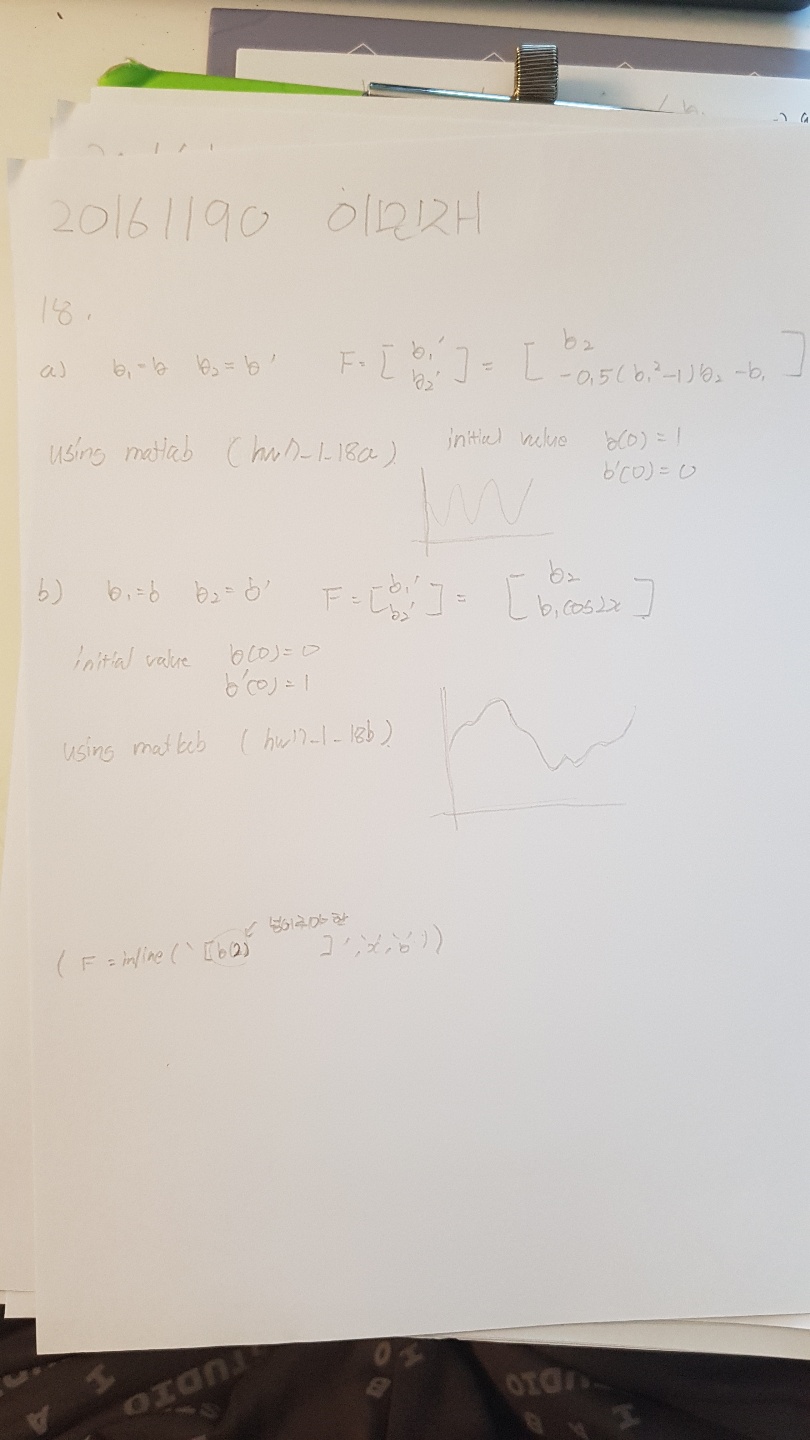 20161190
18.
a) b₁=b b₂=b' F=[b₁' b₂'] = [b₂ -0.5(b₁²-1)b₂-b₁]
using matlab (hw7-1-18a) initial value b(0)=1
b'(0)=0
b) b₁=b b₂=b' F=[b₁' b₂'] = [b₂ b₁cos2x]
initial value b(0)=0
b'(0)=1
using matlab (hw7-1-18b)
(F=inline('[b(2) ]','x','b'))